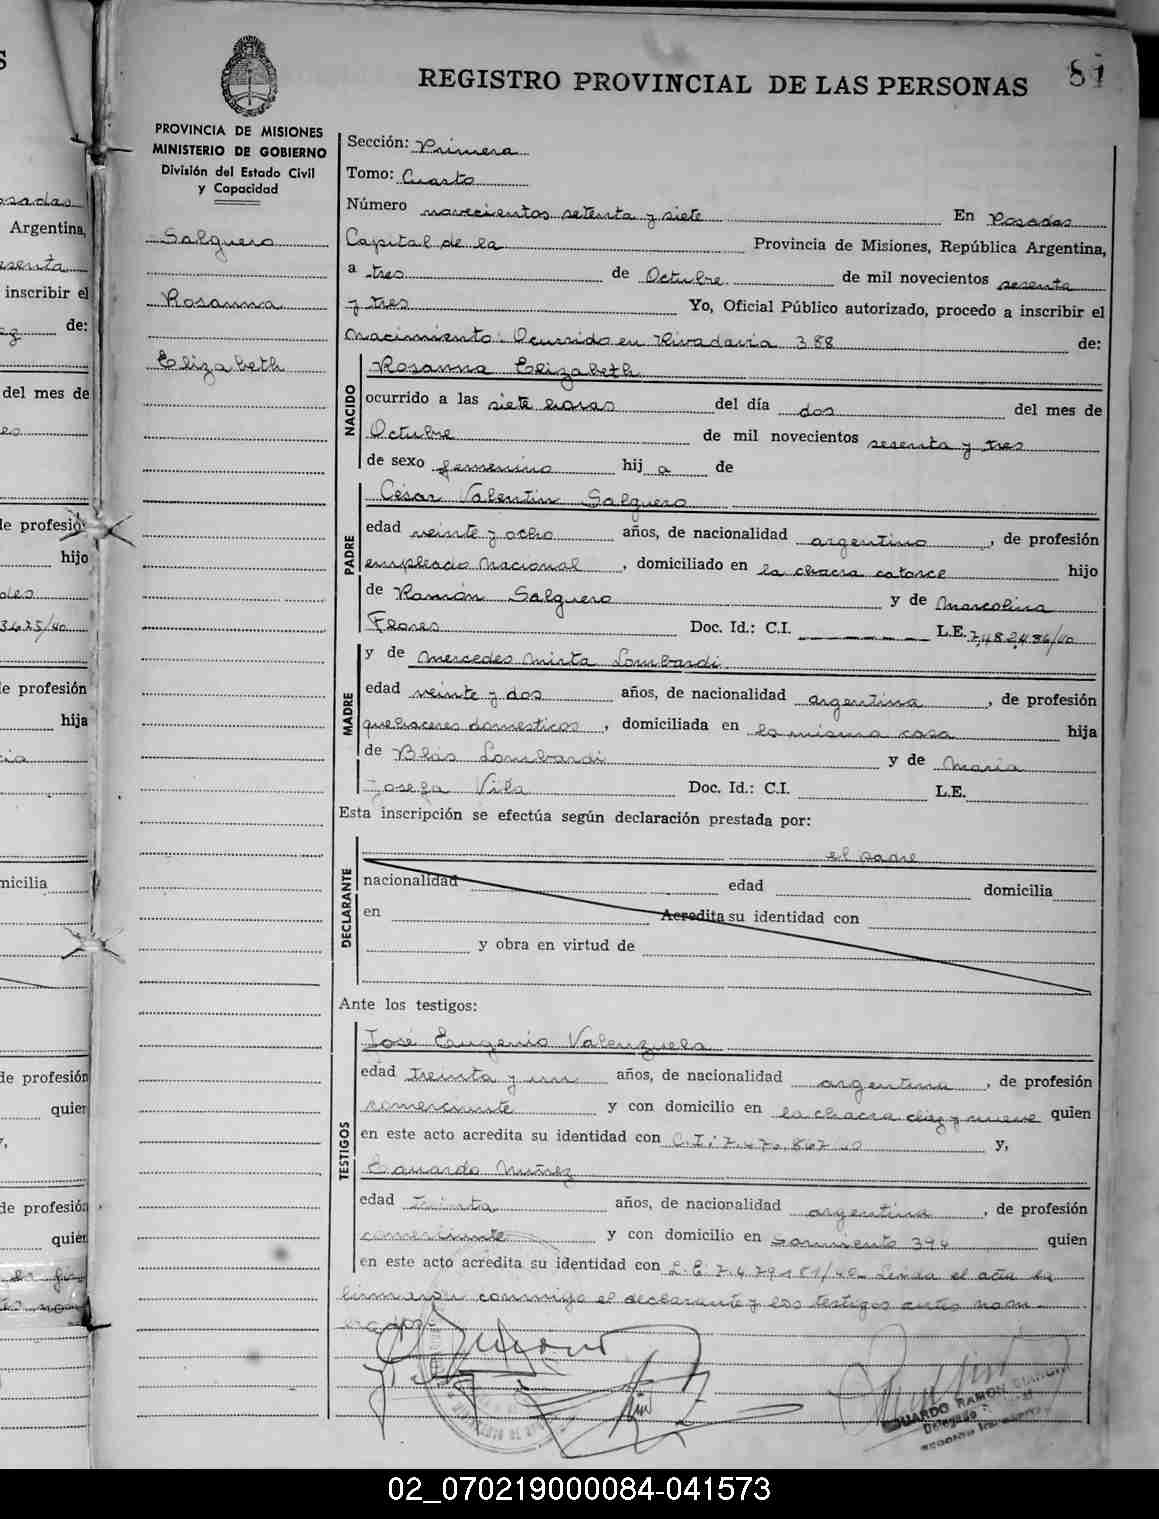 REGISTRO PROVINCIAL DE LAS PERSONAS
81
PROVINCIA DE MISIONES
MINISTERIO DE GOBIERNO
División del Estado Civil
y Capacidad
Salguero
Rosanna
Elizabeth
Sección: Primera
Tomo: Cuarto
Número novecientos setenta y siete En Posadas
Capital de la Provincia de Misiones, República Argentina,
a tres de Octubre de mil novecientos sesenta
y tres Yo, Oficial Público autorizado, procedo a inscribir el
nacimiento: Ocurrido en Rivadavia 388 de:
NACIDO
Rosanna Elizabeth
ocurrido a las siete horas del día dos del mes de
Octubre de mil novecientos sesenta y tres
de sexo femenino hij a de
PADRE
César Valentin Salguero
edad veinte y ocho años, de nacionalidad argentino, de profesión
empleado Nacional, domiciliado en la chacra catorce hijo
de Ramón Salguero y de Marcolina
Flores Doc. Id.: C.I. L.E. 7.482.486/40
MADRE
y de Mercedes Mirta Lombardi
edad veinte y dos años, de nacionalidad argentina, de profesión
quehaceres domesticos, domiciliada en la misma casa hija
de Blás Lombardi y de Maria
Josefa Vila Doc. Id.: C.I. L.E.
Esta inscripción se efectúa según declaración prestada por:
DECLARANTE
el padre
nacionalidad edad domicilia
en Acredita su identidad con
y obra en virtud de
Ante los testigos:
TESTIGOS
José Eugenio Valenzuela
edad treinta y un años, de nacionalidad argentina, de profesión
comerciante y con domicilio en la chacra diez y nueve quien
en este acto acredita su identidad con C.I: 7.470.867/40 y,
Eduardo Nuñez
edad treinta años, de nacionalidad argentina, de profesión
comerciante y con domicilio en Sarmiento 394 quien
en este acto acredita su identidad con L.E. 7.479181/40. Leida el acta la
firman conmigo el declarante y los testigos antes nom-
brados.-
EDUARDO RAMON
Delegado
02_070219000084-041573